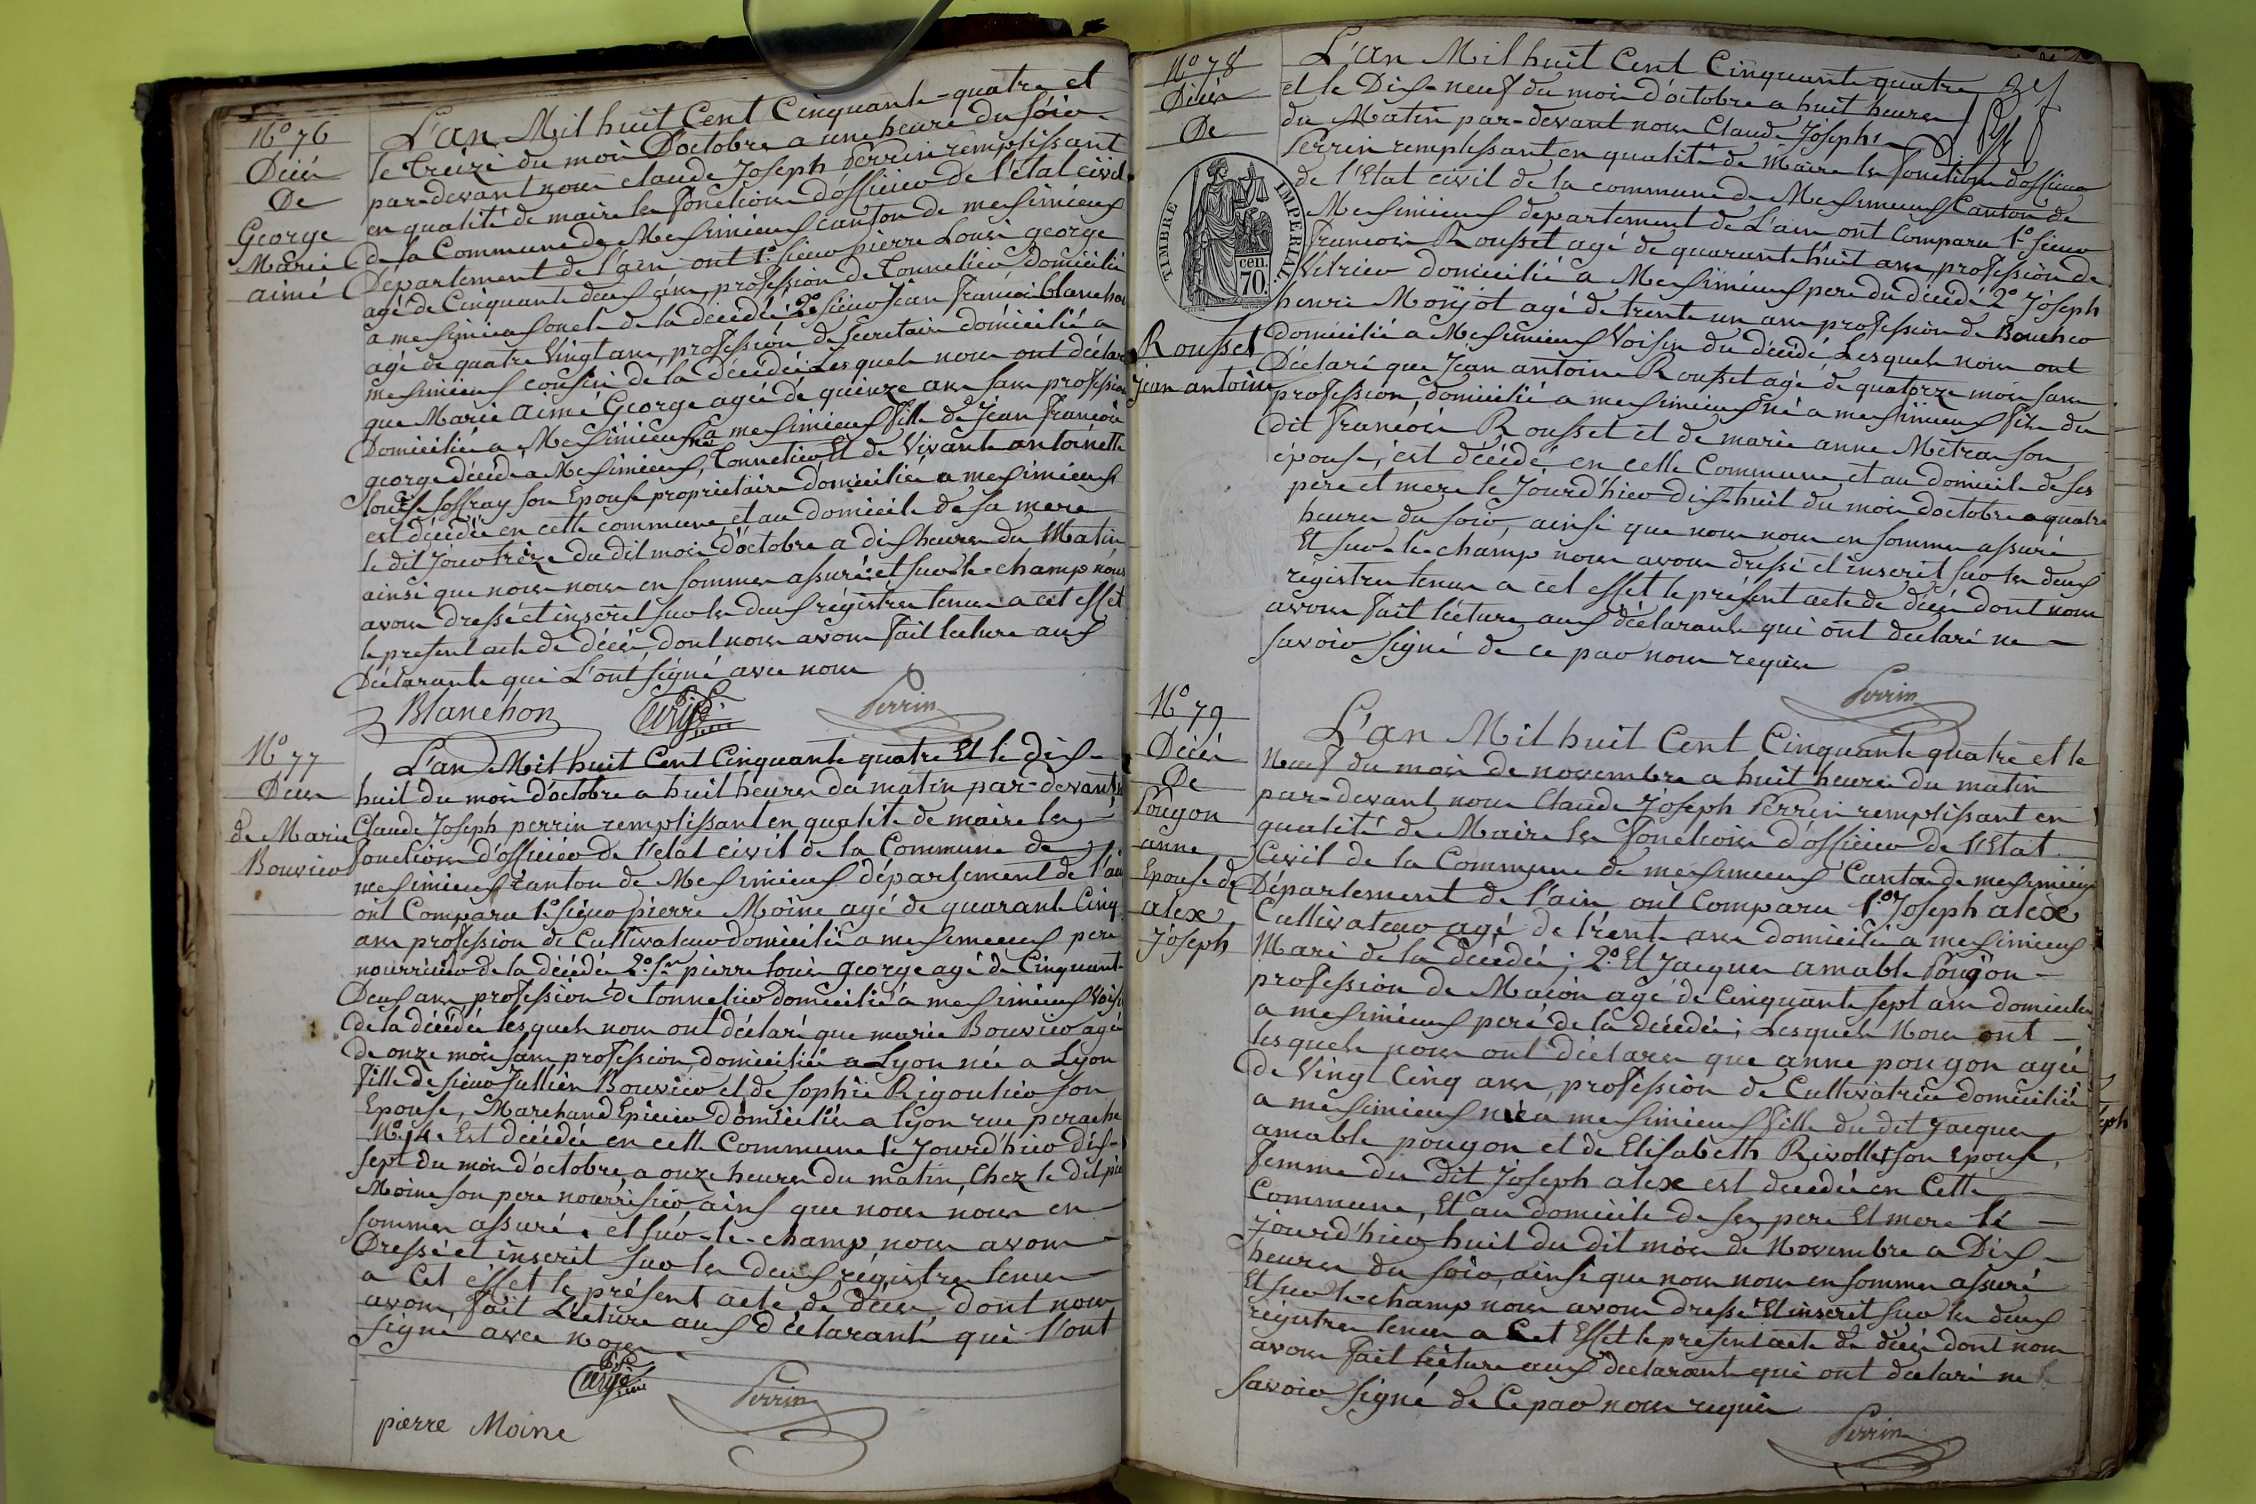 N° 76
Décés
De
George
Marie
aimé
L'an Mil huit Cent Cinquante-quatre et
le treize du mois D'octobre a une heure du soir
par-devant nous claude Joseph Perrin remplissant
en qualité de maire les fonctions d'officier de l'état civil
de la Commune de Meximieux canton de meximieux
Département de l'ain ont 1° sieur pierre Louis george
agé de Cinquante deux ans, profession de Tonnelier domicilié
a meximieux oncle de la décédée 2° sieur Jean François blanchon
agé de quatre Vingt ans, profession de Secretaire domicilié a
meximieux cousin de la décédée Lesquels nous ont déclaré
que Marie Aimé George agée de quinze ans sans profession
Domiciliée a Meximieux née a meximieux fille de Jean François
george décédé a Meximieux, Tonnelier Et de Vivante antoinette
louise Joffray son Epouse propriétaire domiciliée a meximieux
est décédée en cette commune et au domicile de sa mere
le dit jour treize du dit mois d'octobre a dix heures du Matin
ainsi que nous nous en sommes assuré et sur-le-champ nous
avons dressé et inscrit sur les deux régistres tenus a cet effet
le present acte de décés dont nous avons fait lecture aux
Déclarants qui L'ont signé avec nous
Blanchon
Perrin
N° 77
Décés
de Marie
Bouvier
L'an Mil huit Cent Cinquante quatre Et le dix-
huit du mois d'octobre a huit heures du matin par-devant nous
Claude Joseph perrin remplissant en qualité de maire les
fonctions d'officier de l'état civil de la Commune de
meximieux canton de Meximieux département de l'ain
ont Comparu 1° sieur pierre Moine agé de quarante Cinq
ans profession de Cultivateur domicilié a meximieux pere
nourricier de la décédée 2° sr pierre louis george agé de Cinquante
Deux ans profession de tonnelier domicilié a meximieux Voisin
de la décédée lesquels nous ont déclaré que marie Bouvier agée
de onze mois sans profession, domiciliée a Lyon née a Lyon
fille de sieur Jullien Bouvier et de sophie Rigoulier son
Epouse, Marchand Epicier domiciliés a lyon rue perache
N° 14. Est décédée en cette Commune le Jourd'hier dix-
sept du mois d'octobre, a onze heures du matin Chez le dit pierre
Moine son pere nourrissier, ainsi que nous nous en
sommes assuré. et sur-le-champ nous avons
Dressé et inscrit sur les deux régistres tenus
a Cet effet le présent acte de décés dont nous
avons, fait Lecture aux déclarants qui l'ont
signé avec nous
Perrin
pierre Moine
N° 78
Décés
De
TIMBRE IMPERIAL
cen.
70.
Rousset
jean antoine
L'an Mil huit Cent Cinquante quatre
et le Dix-neuf du mois d'octobre a huit heures
du Matin par-devant nous Claude Joseph
Perrin remplissant en qualité de Maire les fonctions d'officier
de l'Etat civil de la commune de Meximieux Canton de
Meximieux departement de L'ain ont Comparu 1° sieur
francois Rousset agé de quarante huit ans, profession de
Vitrier domicilié a Meximieux pere du décédé 2° Joseph
henri Monjot agé de trente un ans profession de Boucher
domicilié a Meximieux Voisin du décédé Lesquels nous ont
Déclaré que Jean antoine Rousset agé de quatorze mois sans
profession, domicilié a meximieux né a meximieux fils du
dit François Rousset et de marie anne Mitra son
épouse, est décédé en cette Commune, et au domicile de ses
pere et mere le Jourd'hier dix-huit du mois d'octobre a quatre
heures du soir, ainsi que nous nous en sommes assuré
Et sur-le-champ nous avons dressé et inscrit sur les deux
régistres tenus a cet effet le présent acte de décés dont nous
avons fait lecture aux déclarants qui ont declaré ne
savoir signé de ce par nous requis
Perrin
N° 79
Décés
De
Pougon
anne
Epouse de
alex
Joseph
L'an Mil huit Cent Cinquante quatre et le
Neuf du mois de novembre a huit heures du matin
par-devant nous Claude Joseph Perrin remplissant en
qualité de Maire les fonctions d'officier de l'Etat
Civil de la Commune de meximieux Canton de meximieux
Département de l'ain ont Comparu 1° Joseph alex
Cultivateur agé de trente ans domicilié a meximieux
Mari de la décédée; 2° Et Jacques amable Pougon
profession de Maçon agé de Cinquante sept ans domicilié
a meximieux pere de la décédée; Lesquels Nous ont
lesquels nous ont déclarer que anne pougon agée
de Vingt Cinq ans, profession de Cultivatrice domiciliée
a meximieux née a meximieux fille du dit Jacques
amable pougon et de Elisabeth Rivollet son Epouse,
femme du dit Joseph alex est décédée en Cette
Commune, Et au domicile de ses pere Et mere le
jourd'hier huit du dit mois de Novembre a Dix
heures du soir, ainsi que nous nous en sommes assuré
Et sur le-champ nous avons dressé Et inscrit sur les deux
régistres tenus a Cet Effet le present acte de décés dont nous
avons fait lecture aux déclarants qui ont declaré ne
savoir signé de Ce par nous requis
Perrin